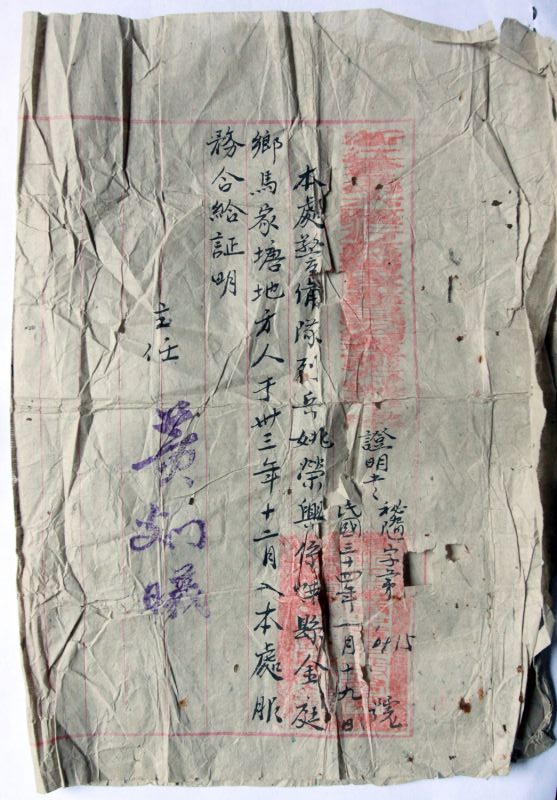 證明書
秘隨字第0415號
民國三十四年一月十九日
本處警备隊列兵姚榮興係嵊縣金庭
鄉馬家塘地方人于卅三年十二月入本處服
務合給証明
主任
黃如曦